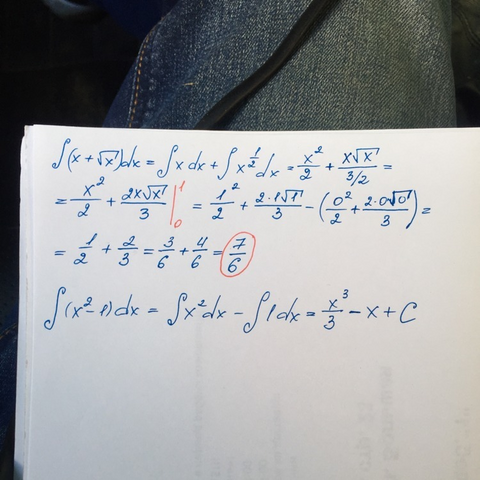 ∫(x + √x)dx = ∫x dx + ∫x^{1/2} dx = x²/2 + x√x/(3/2) =
= x²/2 + 2x√x/3 |₀¹ = 1²/2 + 2·1√1/3 − (0²/2 + 2·0√0/3) =
= 1/2 + 2/3 = 3/6 + 4/6 = 7/6
∫(x² − 1)dx = ∫x²dx − ∫1dx = x³/3 − x + C